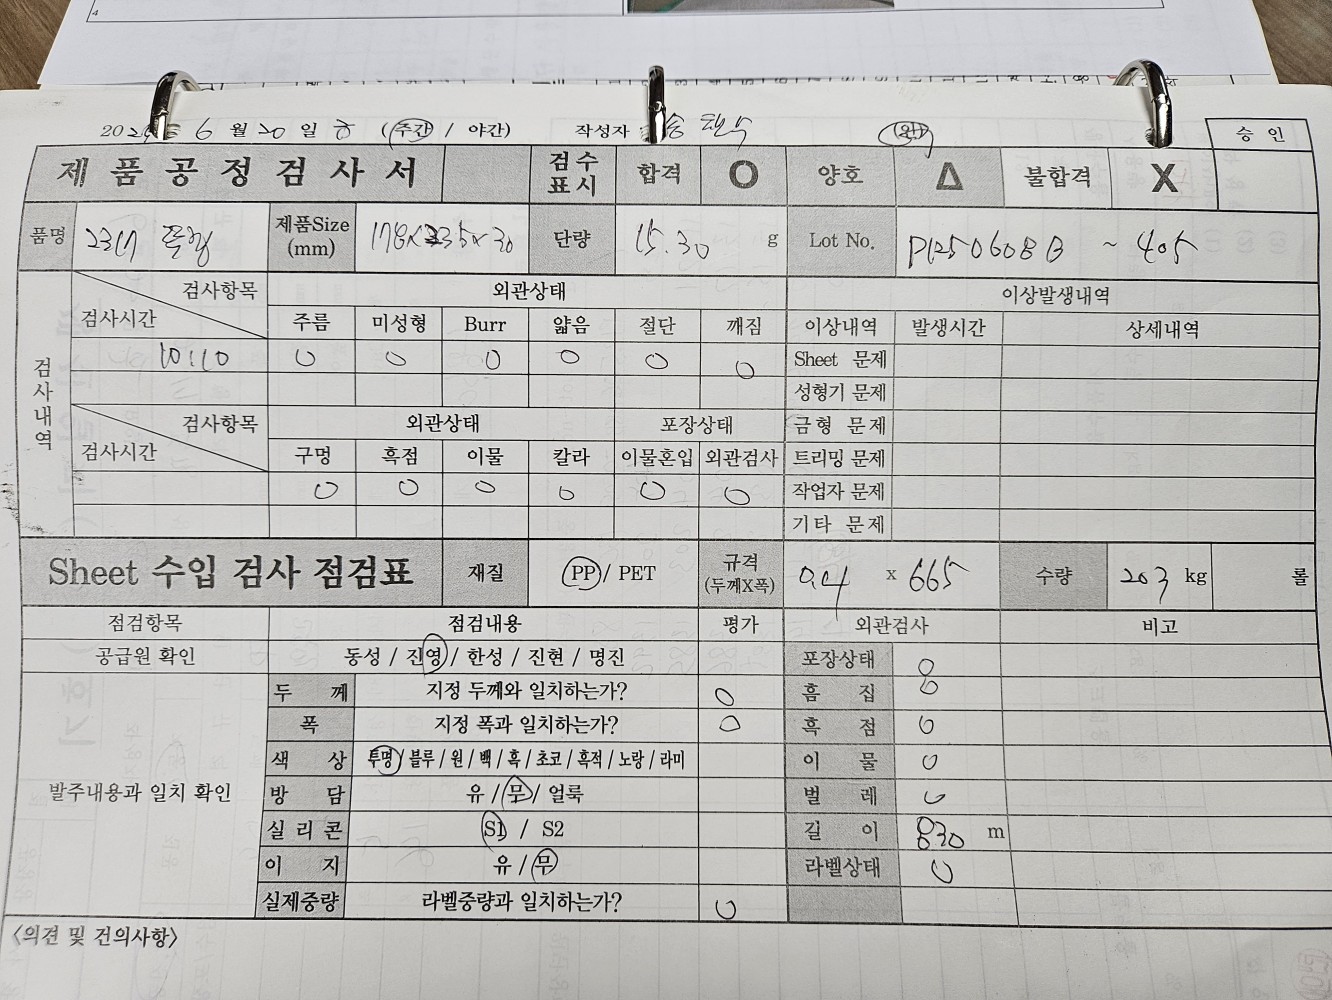 4
6 월 20 일 (주간 / 야간) 작성자 송 승 인
제 품 공 정 검 사 서 검수 표시 합격 O 양호 Δ 불합격 X
품명 2317 제품Size (mm) 178x235x30 단량 15.30 g Lot No. ~ 405
검사항목 외관상태 이상발생내역
검사시간 주름 미성형 Burr 얇음 절단 깨짐 이상내역 발생시간 상세내역
10:10 O O O O O O Sheet 문제
성형기 문제
검사내역
검사항목 외관상태 포장상태 금형 문제
검사시간 구멍 흑점 이물 칼라 이물혼입 외관검사 트리밍 문제
O O O O O O 작업자 문제
기타 문제
Sheet 수입 검사 점검표 재질 PP / PET 규격 (두께X폭) 0.4 x 665 수량 203 kg 롤
점검항목 점검내용 평가 외관검사 비고
공급원 확인 동성 / 진영 / 한성 / 진현 / 명진 포장상태 O
두 께 지정 두께와 일치하는가? O 흠 집 O
폭 지정 폭과 일치하는가? O 흑 점 O
색 상 투명 / 블루 / 원 / 백 / 흑 / 초코 / 흑적 / 노랑 / 라미 이 물 O
발주내용과 일치 확인 방 담 유 / 무 / 얼룩 벌 레 O
실 리 콘 S1 / S2 길 이 830 m
이 지 유 / 무 라벨상태 O
실제중량 라벨중량과 일치하는가? O
<의견 및 건의사항>